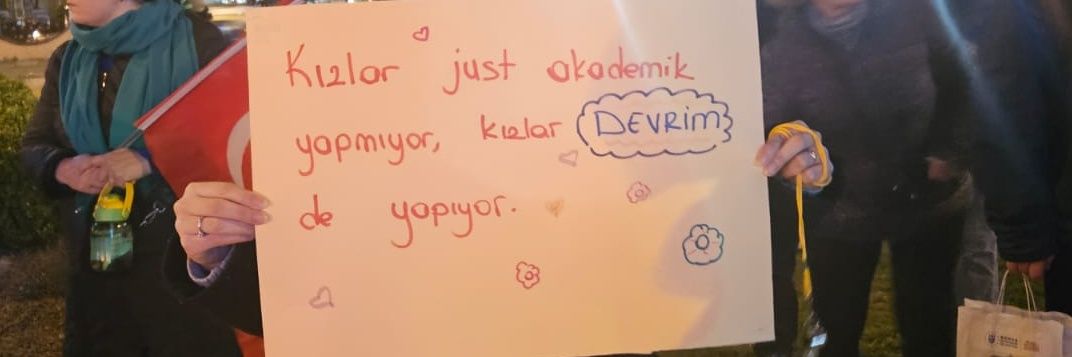 Kızlar just akademik
yapmıyor, kızlar DEVRİM
de yapıyor.